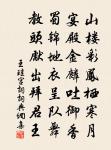 山楼彩凤栖寒月
宴殿金麟吐御香
蜀锦地衣呈队舞
教头献出拜君王
王珪宫词词典网集